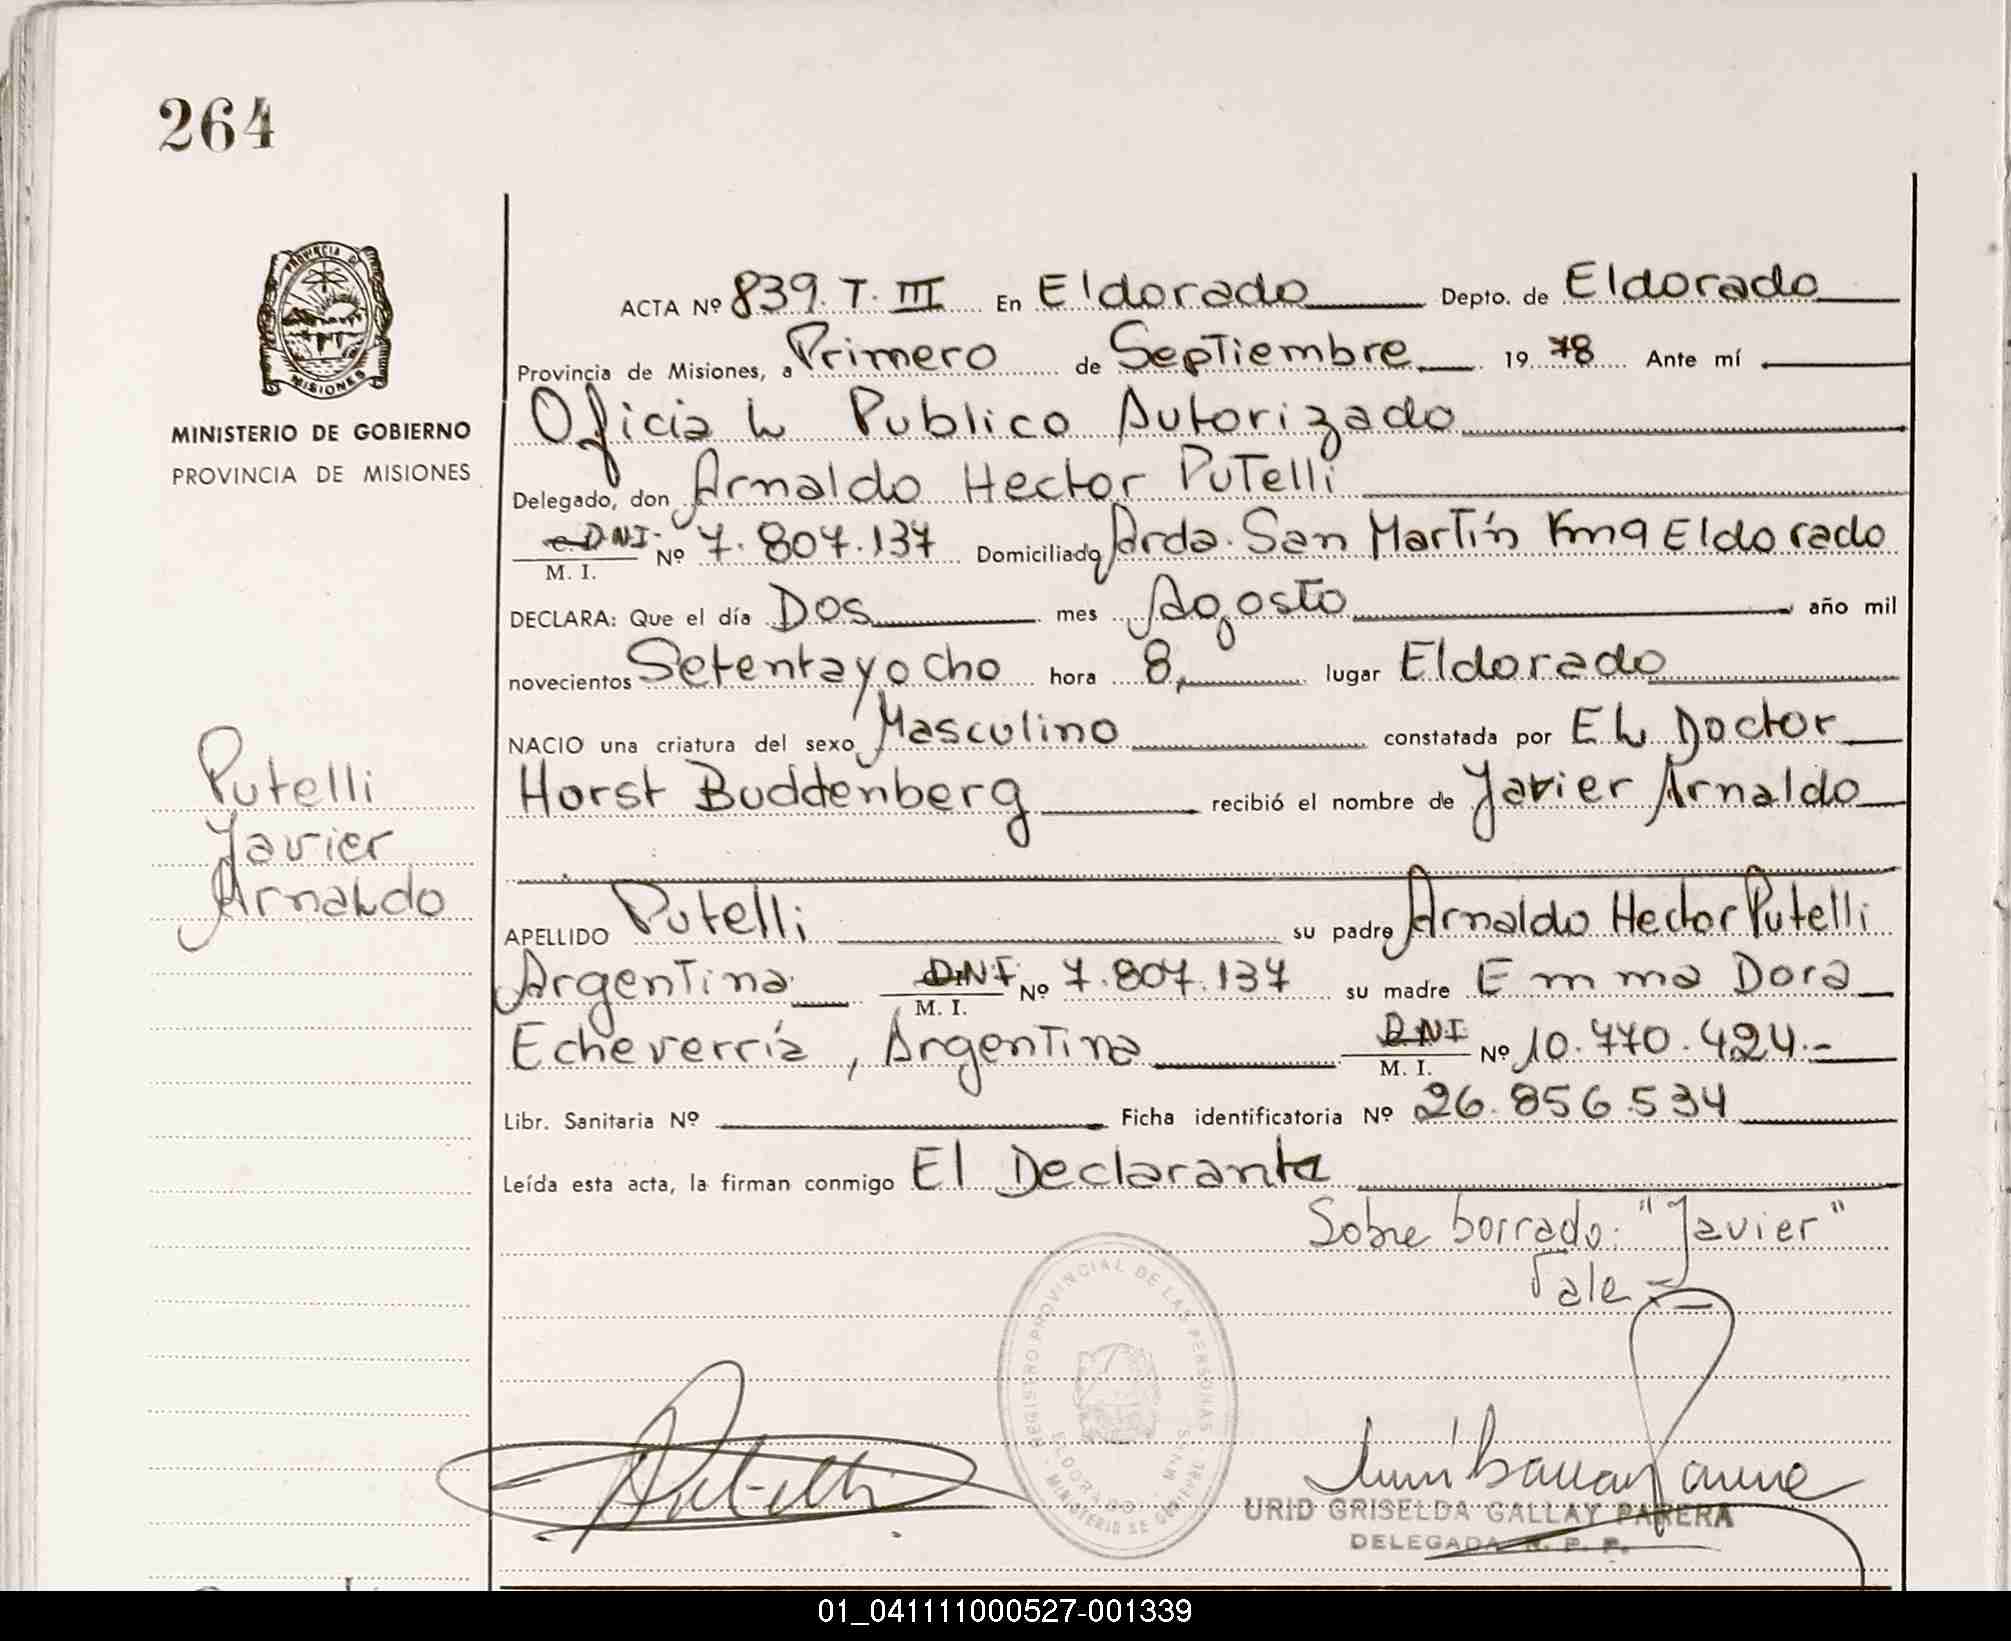 264
PROVINCIA DE
MISIONES
MINISTERIO DE GOBIERNO
PROVINCIA DE MISIONES
Putelli
Javier
Arnaldo
ACTA Nº 839. T. III En Eldorado Depto. de Eldorado
Provincia de Misiones, a Primero de Septiembre 19 78 Ante mí
Oficial Publico Autorizado
Delegado, don Arnaldo Hector Putelli
DNI. M. I. Nº 7.807.137 Domiciliado Avda. San Martín Km 9 Eldorado
DECLARA: Que el día Dos mes Agosto año mil
novecientos Setenta y ocho hora 8, lugar Eldorado
NACIO una criatura del sexo Masculino constatada por El Doctor
Horst Buddenberg recibió el nombre de Javier Arnaldo
APELLIDO Putelli su padre Arnaldo Hector Putelli
Argentina DNI M. I. Nº 7.807.137 su madre Emma Dora
Echeverría, Argentina DNI M. I. Nº 10.770.424.-
Libr. Sanitaria Nº Ficha identificatoria Nº 26.856.534
Leída esta acta, la firman conmigo El Declarante
Sobre borrado: "Javier"
Vale
REGISTRO PROVINCIAL DE LAS PERSONAS
ELDORADO MNES.
MINISTERIO DE GOBIERNO
Putelli
URID GRISELDA GALLAY PARERA
DELEGADA R. P. P.
01_041111000527-001339